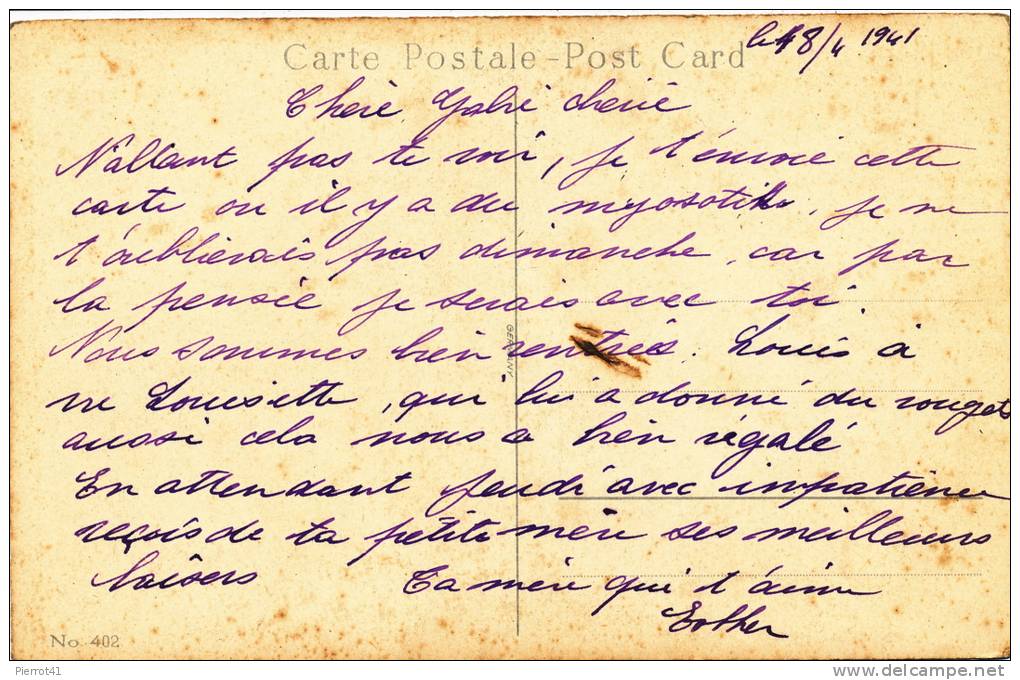 le 18/4 1941
Carte Postale - Post Card
Cherè Gabri cherie
N'allant pas te voir, je t'envoie cette
carte ou il y a du myosotis, je ne
t'oublierais pas dimanche, car par
la pensée je serais avec toi
Nous sommes bien rentrées. Louis à
vu Louisette, qui lui a donné du rougets
aussi cela nous a bien régalé
En attendant jeudi avec impatience
reçois de ta petite mère ses meilleurs
baisers Ta mère qui t'aime
Esther
GERMANY
No 402
Pierrot41
www.delcampe.net